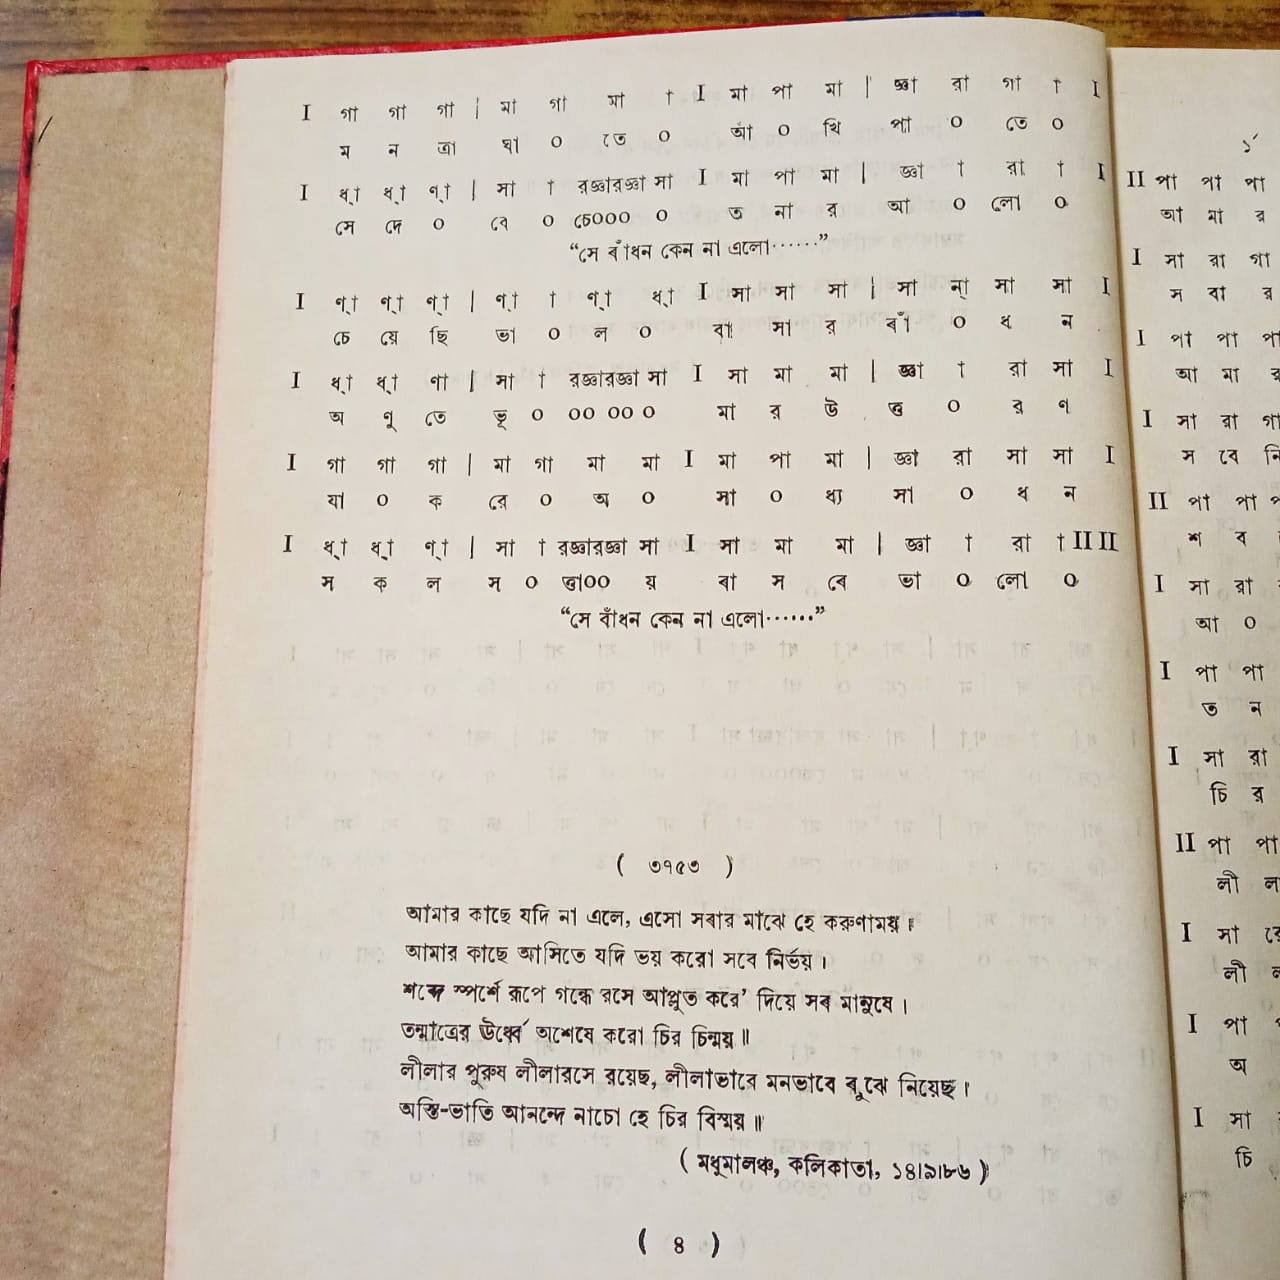 I গা গা গা | মা গা মা † I মা পা মা | জ্ঞা রা গা † I
ম ন ত্রা ঘা ০ তে ০ আঁ ০ খি পা ০ তে ০
I ধ্া ধ্া ণ্া | সা † রজ্ঞারজ্ঞা সা I মা পা মা | জ্ঞা † রা † I
সে দে ০ বে ০ চে০০০ ০ ত নার আ ০ লো ০
“সে বাঁধন কেন না এলো······”
I ণ্া ণ্া ণ্া | ণ্া † ণ্া ধ্া I সা সা সা | সা ন্া সা সা I
চে য়ে ছি ভা ০ ল ০ বা সা র বাঁ ০ ধ ন
I ধ্া ধ্া ণা | সা † রজ্ঞারজ্ঞা সা I সা মা মা | জ্ঞা † রা সা I
অ ণু তে ভূ ০ ০০ ০০ ০ মা র উ ত্ত ০ র ণ
I গা গা গা | মা গা মা মা I মা পা মা | জ্ঞা রা সা সা I
যা ০ ক রে ০ অ ০ সা ০ ধ্য সা ০ ধ ন
I ধ্া ধ্া ণ্া | সা † রজ্ঞারজ্ঞা সা I সা মা মা | জ্ঞা † রা † II II
স ক ল স ০ ত্তা০০ য় বা স বে ভা ০ লো ০
“সে বাঁধন কেন না এলো······”
( ৩৭৫৩ )
আমার কাছে যদি না এলে, এসো সবার মাঝে হে করুণাময় ।
আমার কাছে আসিতে যদি ভয় করো সবে নির্ভয় ।
শব্দে স্পর্শে রূপে গন্ধে রসে আপ্লুত করে’ দিয়ে সব মানুষে ।
তন্মাত্রের ঊর্ধ্বে অশেষে করো চির চিন্ময় ॥
লীলার পুরুষ লীলারসে রয়েছ, লীলাভাবে মনভাবে বুঝে নিয়েছ ।
অস্তি-ভাতি আনন্দে নাচো হে চির বিস্ময় ॥
( মধুমালঞ্চ, কলিকাতা, ১৪।৯।৮৬ )
( ৪ )
১´
II পা পা পা
আ মা র
I সা রা গা
স বা র
I পা পা পা
আ মা র
I সা রা গা
স বে নি
II পা পা
শ ব
I সা রা
আ ০
I পা পা
ত ন
I সা রা
চি র
II পা পা
লী লা
I সা
লী
I পা
অ
I সা
চি